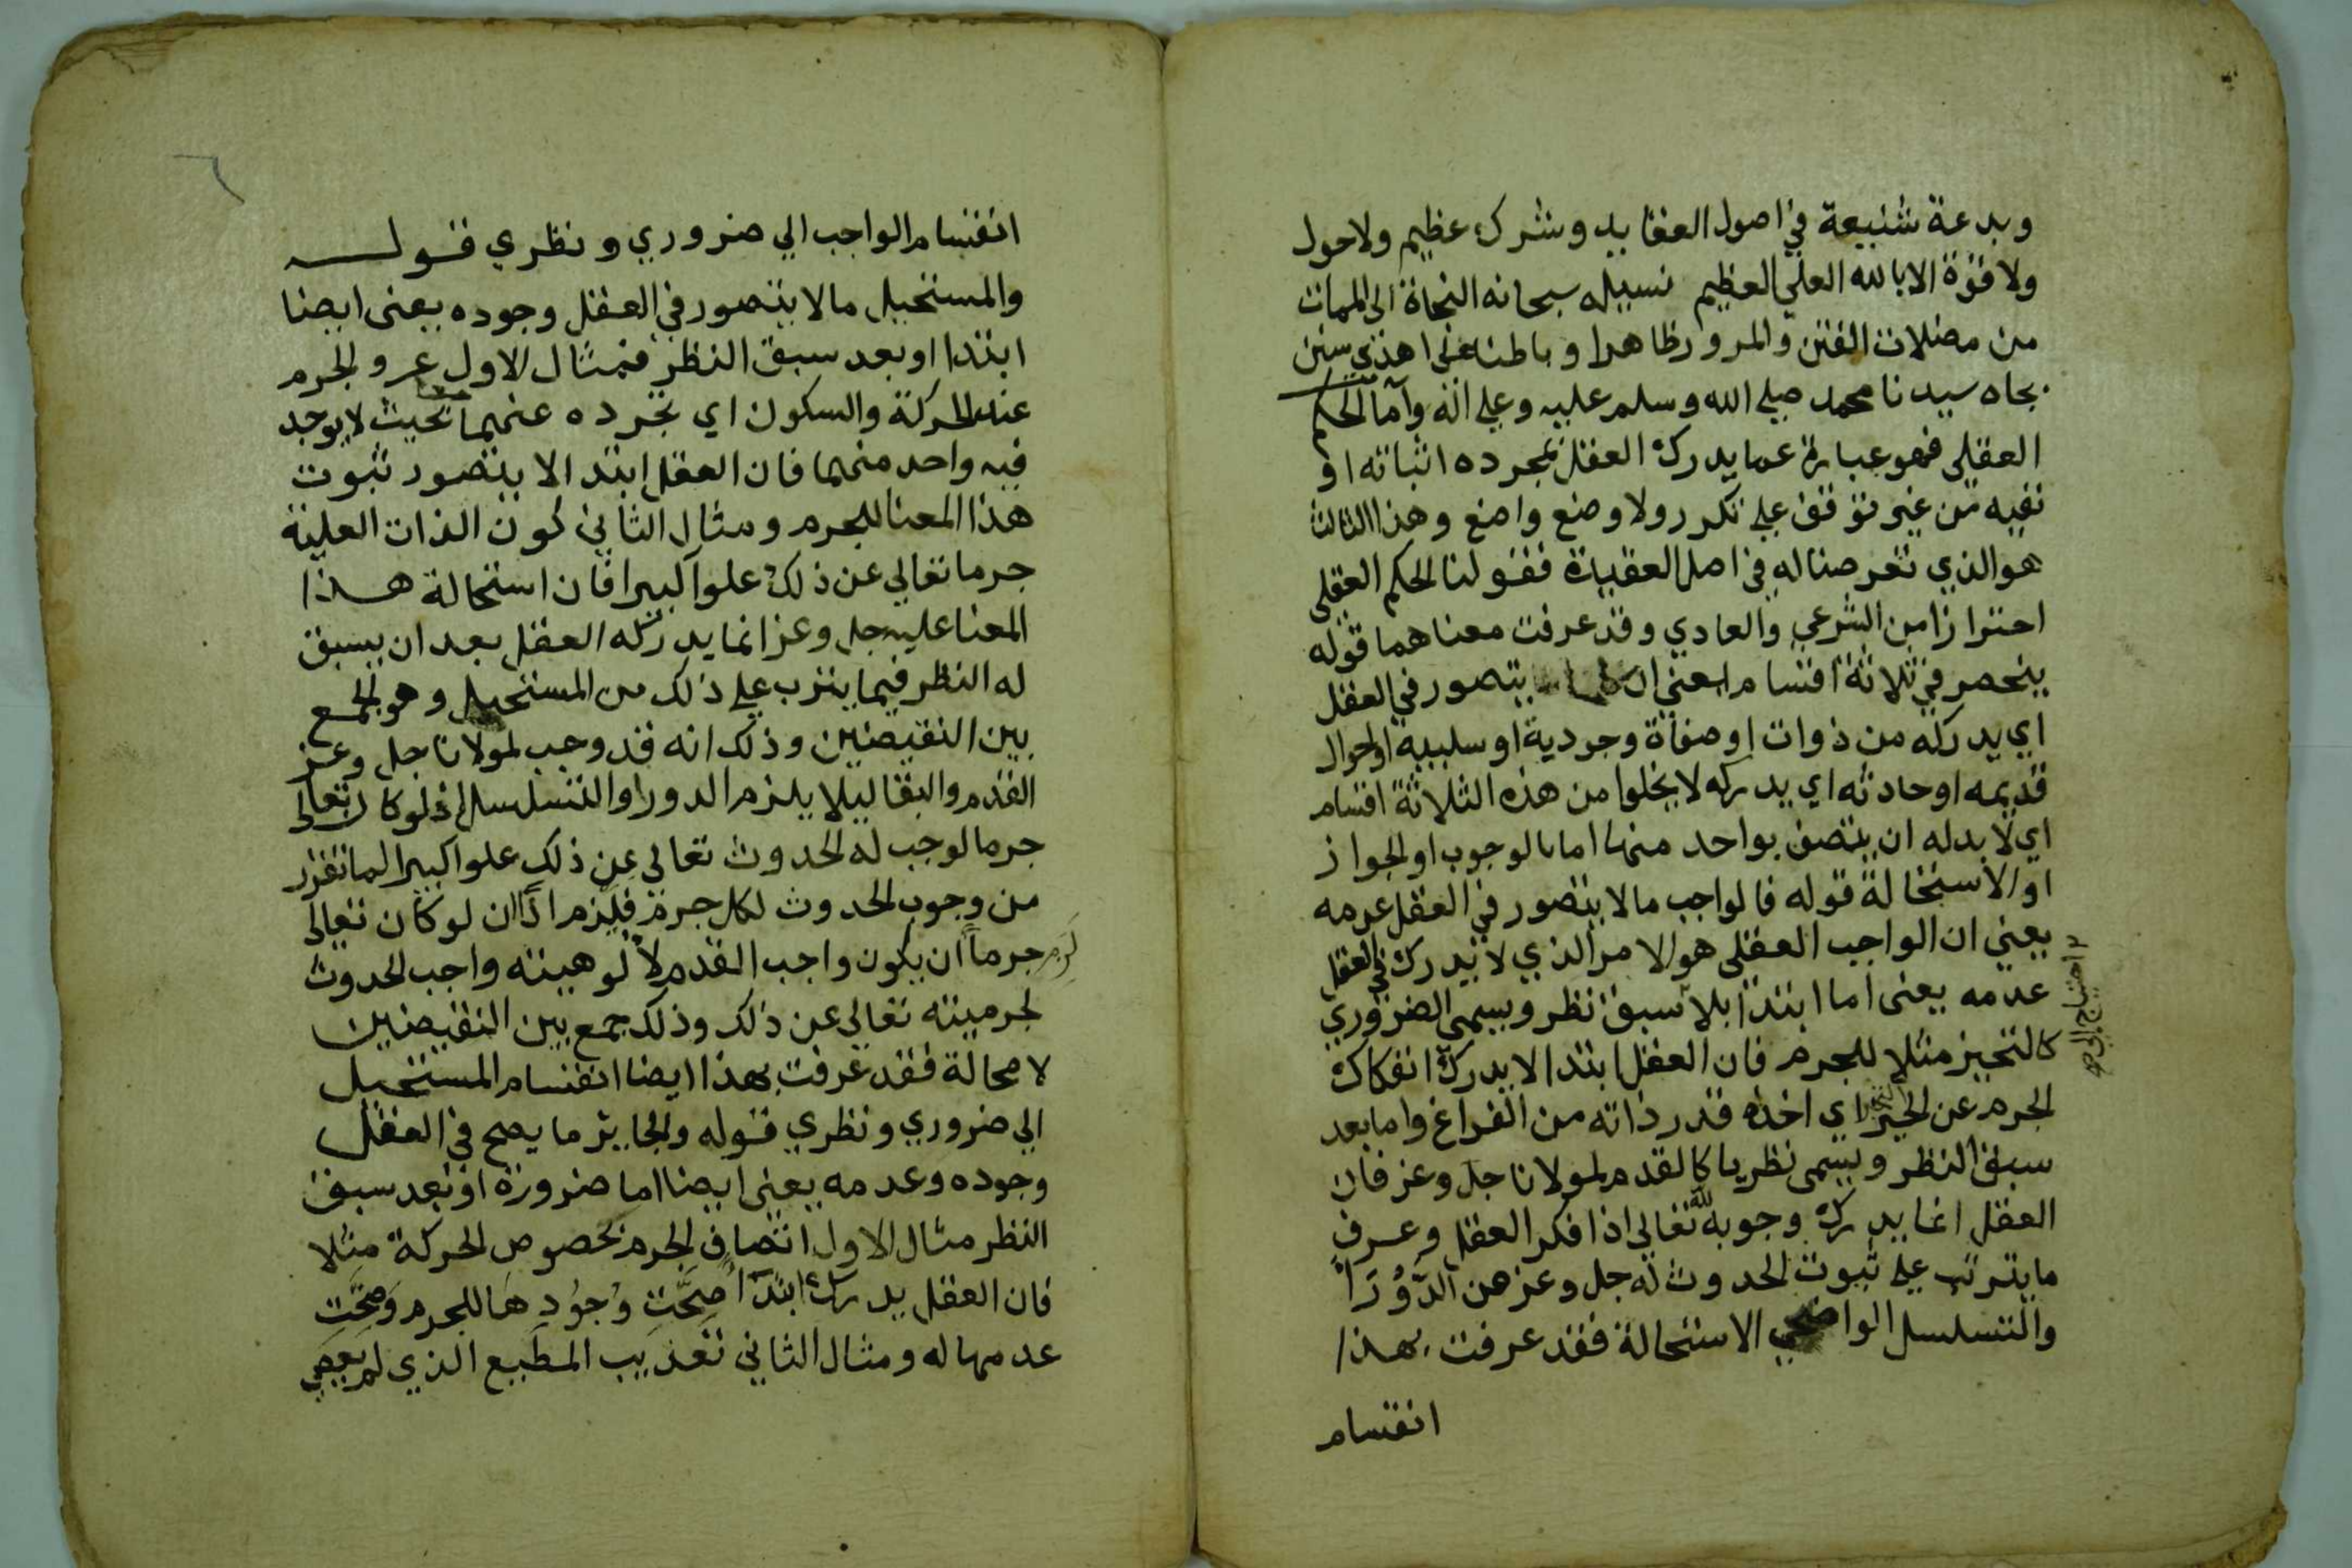 وبدعة شنيعة في اصول العقايد وشرك عظيم ولاحول
ولا قوة الا بالله العلي العظيم نسيله سبحانه النجاة الى الممات
من مضلات الفتن والمرور ظاهرا وباطنا على اهدي سنن
بجاه سيدنا محمد صلي الله وسلم عليه وعلي اله وأما الحكم
العقلي فهو عبارة عما يدرك العقل بمجرده اثباته او
نفيه من غير توقف علي تكرر ولا وضع واضع وهذا الثالث
هو الذي تعرضنا له في اصل العقيدة فقولنا الحكم العقلي
احترازا من الشرعي والعادي وقد عرفت معناهما قوله
ينحصر في ثلاثة اقسام يعني ان كلما يتصور في العقل
اي يدركه من ذوات او صفاة وجودية او سلبيه او احوال
قديمه او حادثه اي يدركه لا يخلوا من هذه الثلاثة اقسام
اي لا بد له ان يتصف بواحد منها اما بالوجوب او الجواز
او الاستخالة قوله فالواجب مالا يتصور في العقل عدمه
يعني ان الواجب العقلى هو الامر الذي لا يدرك في العقل
عدمه يعنى اما ابتدا بلا سبق نظر ويسمى الضروري
احتياج الى
كالتحيز مثلا للجرم فان العقل ابتدا لا يدرك انفكاك
الجرم عن الحيز اي اخذه قدر ذاته من الفراغ واما بعد
سبق النظر ويسمى نظريا كالقدم لمولانا جل وعز فان
العقل انما يدرك وجوبه لله تعالي اذا فكر العقل وعرف
ما يترتب علي ثبوت الحدوث له جل وعز من الدَّوْرَ اً
والتسلسل الواضحي الاستحالة فقد عرفت بهذا
انقسام
٦
انقسام الواجب الي ضروري ونظري قولـــه
والمستحيل مالا يتصور في العقل وجوده يعنى ايضا
ابتدا او بعد سبق النظر فمثال الاول عرو الجرم
عند الحركة والسكون اي تجرده عنهما بحيث لا يوجد
فيه واحد منهما فان العقل ابتدا لا يتصور ثبوت
هذا المعنا للجرم ومثال الثاني كون الذات العلية
جرما تعالي عن ذلك علوا كبيرا فان استحالة هـذا
المعنا عليه جل وعز انما يدركه العقل بعد ان يسبق
له النظر فيما يترب علي ذلك من المستحيل وهو الجمع
بين النقيضين وذلك انه قد وجب لمولانا جل وعز
القدم والبقا ليلا يلزم الدور او التسلسل اذ لو كان تعالى
جرما لوجب له الحدوث تعالي عن ذلك علوا كبيرا لما تقرر
من وجوب الحدوث لكل جرم فيلزم اذًا ان لو كان تعالى
جرماً ان يكون واجب القدم لألوهيته واجب الحدوث
لجرميته تعالي عن ذلك وذلك جمع بين النقيضين
لا محالة فقد عرفت بهذا ايضا انقسام المستحيل
الي ضروري ونظري قوله والجايز ما يصح في العقل
وجوده وعدمه يعنى ايضا اما ضرورة او بعد سبق
النظر مثال الاول اتصاف الجرم بخصوص الحركة مثلا
فان العقل يدرك ابتداً صِحَّت وُجوُدِهَا للجرم وَصحَّت
عدمها له ومثال الثاني تعذيب المطيع الذي لم يعصِ